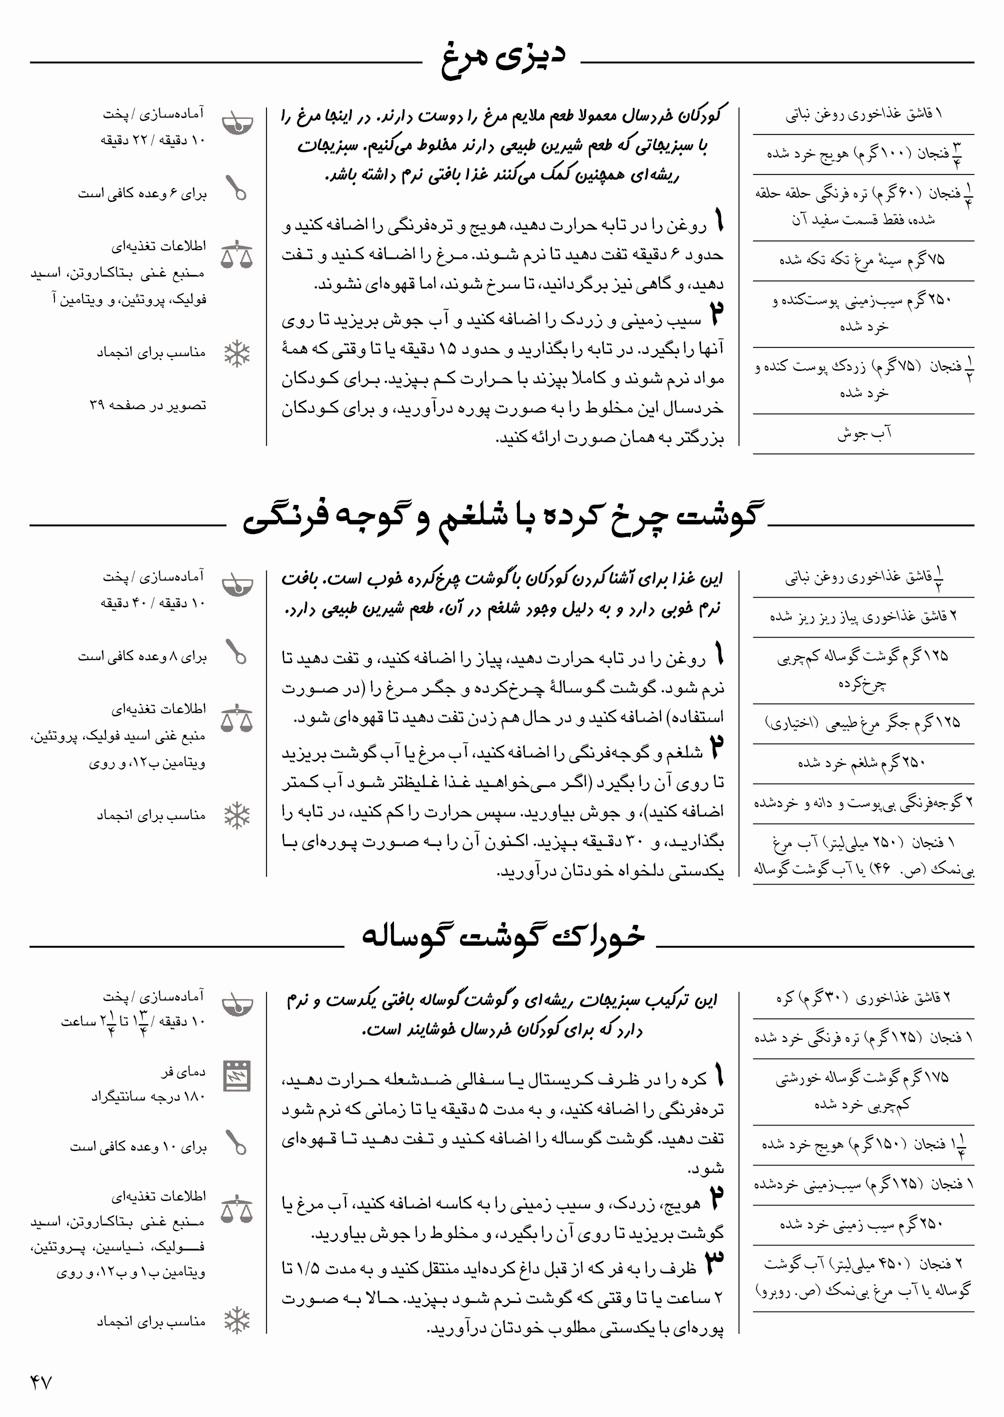 دیزی مرغ
۱ قاشق غذاخوری روغن نباتی
۳/۴ فنجان (۱۰۰گرم) هویج خرد شده
۱/۴ فنجان (۶۰گرم) تره فرنگی حلقه حلقه
شده، فقط قسمت سفید آن
۷۵گرم سینهٔ مرغ تکه تکه شده
۲۵۰گرم سیب‌زمینی پوست‌کنده و
خرد شده
۱/۲ فنجان (۷۵گرم) زردک پوست کنده و
خرد شده
آب جوش
کودکان خردسال معمولا طعم ملایم مرغ را دوست دارند. در اینجا مرغ را
با سبزیجاتی که طعم شیرین طبیعی دارند مخلوط می‌کنیم. سبزیجات
ریشه‌ای همچنین کمک می‌کنند غذا بافتی نرم داشته باشد.
۱ روغن را در تابه حرارت دهید، هویج و تره‌فرنگی را اضافه کنید و
حدود ۶ دقیقه تفت دهید تا نرم شوند. مرغ را اضافه کنید و تفت
دهید، و گاهی نیز برگردانید، تا سرخ شوند، اما قهوه‌ای نشوند.
۲ سیب زمینی و زردک را اضافه کنید و آب جوش بریزید تا روی
آنها را بگیرد. در تابه را بگذارید و حدود ۱۵ دقیقه یا تا وقتی که همهٔ
مواد نرم شوند و کاملا بپزند با حرارت کم بپزید. برای کودکان
خردسال این مخلوط را به صورت پوره درآورید، و برای کودکان
بزرگتر به همان صورت ارائه کنید.
آماده‌سازی / پخت
۱۰ دقیقه / ۲۲ دقیقه
برای ۶ وعده کافی است
اطلاعات تغذیه‌ای
منبع غنی بتاکاروتن، اسید
فولیک، پروتئین، و ویتامین آ
مناسب برای انجماد
تصویر در صفحه ۳۹
گوشت چرخ کرده با شلغم و گوجه فرنگی
۱/۲ قاشق غذاخوری روغن نباتی
۲ قاشق غذاخوری پیاز ریز ریز شده
۱۲۵گرم گوشت گوساله کم‌چربی
چرخ‌کرده
۱۲۵گرم جگر مرغ طبیعی (اختیاری)
۲۵۰گرم شلغم خرد شده
۲ گوجه‌فرنگی بی‌پوست و دانه و خردشده
۱ فنجان (۲۵۰ میلی‌لیتر) آب مرغ
بی‌نمک (ص. ۴۶) یا آب گوشت گوساله
این غذا برای آشنا کردن کودکان با گوشت چرخ‌کرده خوب است. بافت
نرم خوبی دارد و به دلیل وجود شلغم در آن، طعم شیرین طبیعی دارد.
۱ روغن را در تابه حرارت دهید، پیاز را اضافه کنید، و تفت دهید تا
نرم شود. گوشت گوسالهٔ چرخ‌کرده و جگر مرغ را (در صورت
استفاده) اضافه کنید و در حال هم زدن تفت دهید تا قهوه‌ای شود.
۲ شلغم و گوجه‌فرنگی را اضافه کنید، آب مرغ یا آب گوشت بریزید
تا روی آن را بگیرد (اگر می‌خواهید غذا غلیظتر شود آب کمتر
اضافه کنید)، و جوش بیاورید. سپس حرارت را کم کنید، در تابه را
بگذارید، و ۳۰ دقیقه بپزید. اکنون آن را به صورت پوره‌ای با
یکدستی دلخواه خودتان درآورید.
آماده‌سازی / پخت
۱۰ دقیقه / ۴۰ دقیقه
برای ۸ وعده کافی است
اطلاعات تغذیه‌ای
منبع غنی اسید فولیک، پروتئین،
ویتامین ب۱۲، و روی
مناسب برای انجماد
خوراک گوشت گوساله
۲ قاشق غذاخوری (۳۰گرم) کره
۱ فنجان (۱۲۵گرم) تره فرنگی خرد شده
۱۷۵گرم گوشت گوساله خورشتی
کم‌چربی خرد شده
۱ ۱/۴ فنجان (۱۵۰گرم) هویج خرد شده
۱ فنجان (۱۲۵گرم) سیب‌زمینی خردشده
۲۵۰گرم سیب زمینی خرد شده
۲ فنجان (۴۵۰ میلی‌لیتر) آب گوشت
گوساله یا آب مرغ بی‌نمک (ص. روبرو)
این ترکیب سبزیجات ریشه‌ای و گوشت گوساله بافتی یکدست و نرم
دارد که برای کودکان خردسال خوشایند است.
۱ کره را در ظرف کریستال یا سفالی ضدشعله حرارت دهید،
تره‌فرنگی را اضافه کنید، و به مدت ۵ دقیقه یا تا زمانی که نرم شود
تفت دهید. گوشت گوساله را اضافه کنید و تفت دهید تا قهوه‌ای
شود.
۲ هویج، زردک، و سیب زمینی را به کاسه اضافه کنید، آب مرغ یا
گوشت بریزید تا روی آن را بگیرد، و مخلوط را جوش بیاورید.
۳ ظرف را به فر که از قبل داغ کرده‌اید منتقل کنید و به مدت ۱/۵ تا
۲ ساعت یا تا وقتی که گوشت نرم شود بپزید. حالا به صورت
پوره‌ای با یکدستی مطلوب خودتان درآورید.
آماده‌سازی / پخت
۱۰ دقیقه / ۱ ۳/۴ تا ۲ ۱/۴ ساعت
دمای فر
۱۸۰ درجه سانتیگراد
برای ۱۰ وعده کافی است
اطلاعات تغذیه‌ای
منبع غنی بتاکاروتن، اسید
فولیک، نیاسین، پروتئین،
ویتامین ب۱ و ب۱۲، و روی
مناسب برای انجماد
۴۷